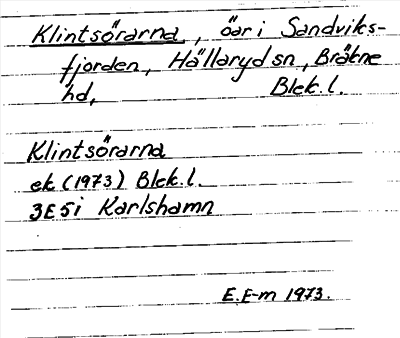 Klintsörarna, öar i Sandviks-
fjorden, Hällaryd sn, Bräkne
hd, Blek.l.
Klintsörarna
ek (1973) Blek.l.
3E5i Karlshamn
E.E-m 1973.